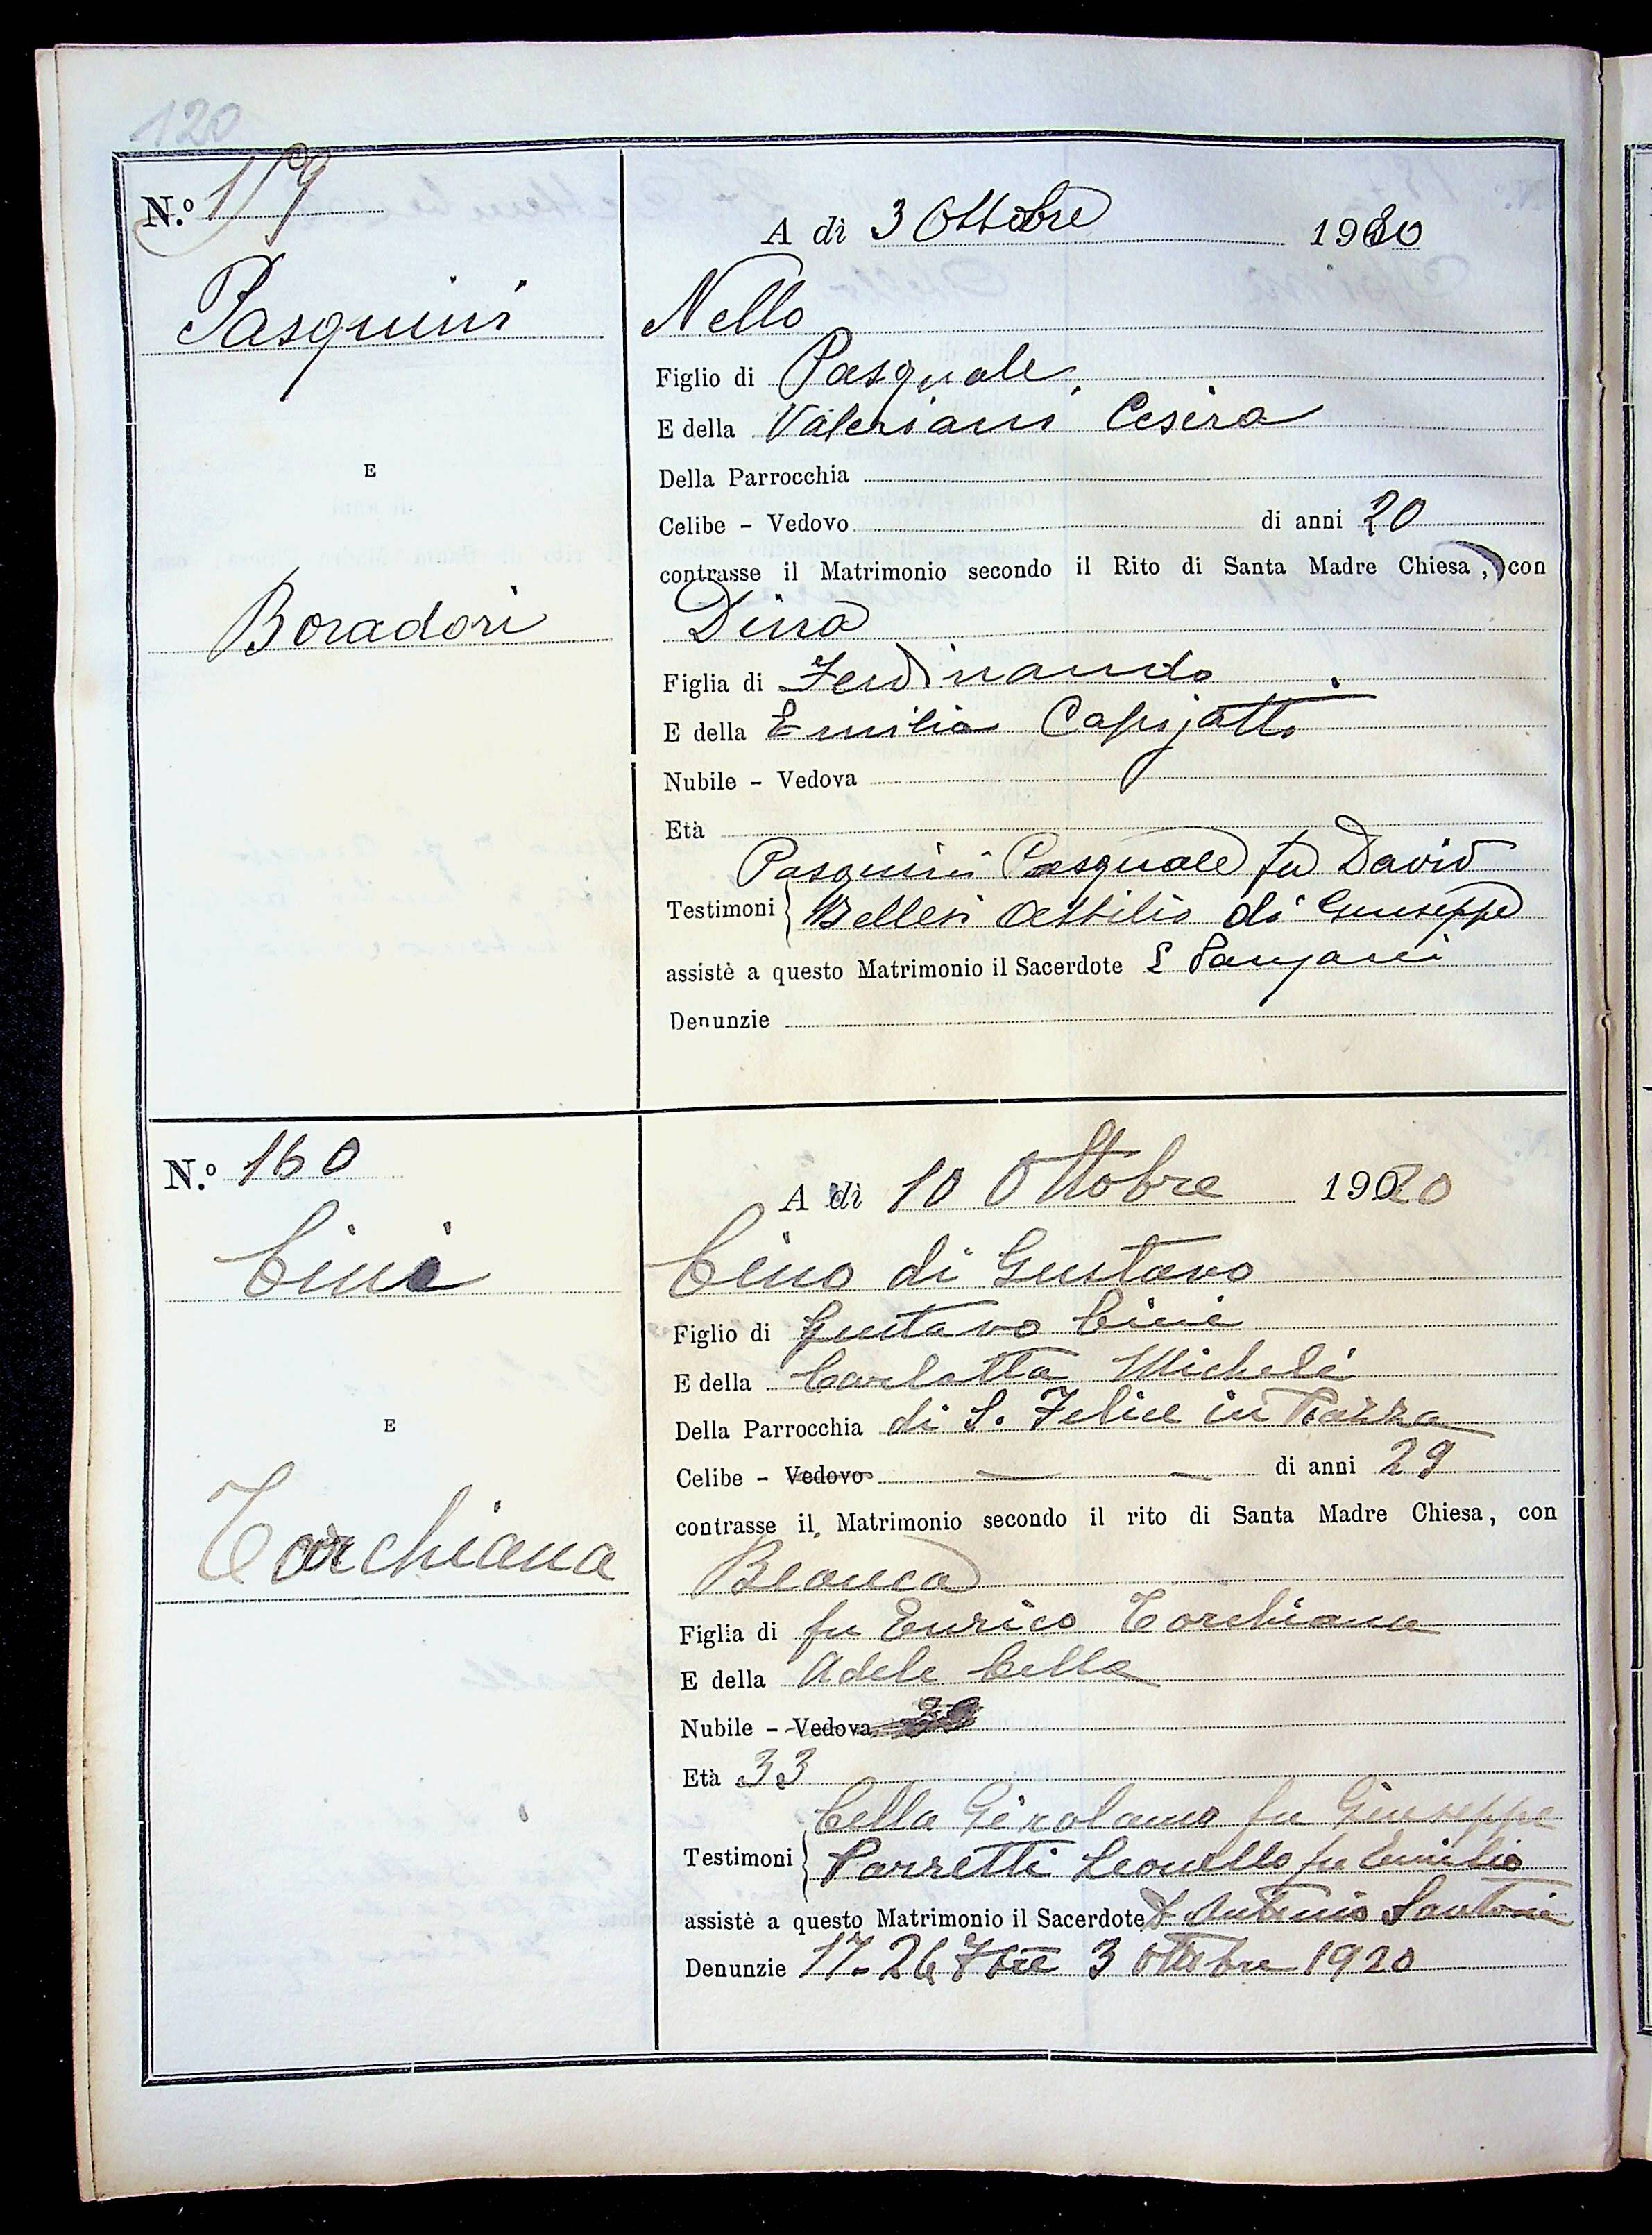 120
N.º 159
A dì 3 Ottobre 1920
Pasquini
Nello
Figlio di Pasquale
E della Valeriani Cesira
E
Della Parrocchia
Celibe - Vedovo di anni 20
contrasse il Matrimonio secondo il Rito di Santa Madre Chiesa, con
Boradori
Dina
Figlia di Ferdinando
E della Emilia
Nubile - Vedova
Età
Pasquini Pasquale fu David
Testimoni Bellesi Attilio di Giuseppe
assistè a questo Matrimonio il Sacerdote
Denunzie
N.º 160
A dì 10 Ottobre 1920
Cini
Cino di Gustavo
Figlio di Gustavo Cini
E della Carlotta Micheli
Della Parrocchia di S. Felice in Piazza
E
Celibe - Vedovo di anni 29
contrasse il Matrimonio secondo il rito di Santa Madre Chiesa, con
Torchiana
Bianca
Figlia di fu Enrico Torchiana
E della Adele Cella
Nubile - Vedova
Età 33
Cella Girolamo fu Giuseppe
Testimoni Parretti Leonello fu Emilio
assistè a questo Matrimonio il Sacerdote D Antonio Santoni
Denunzie 17-26 7bre 3 Ottobre 1920